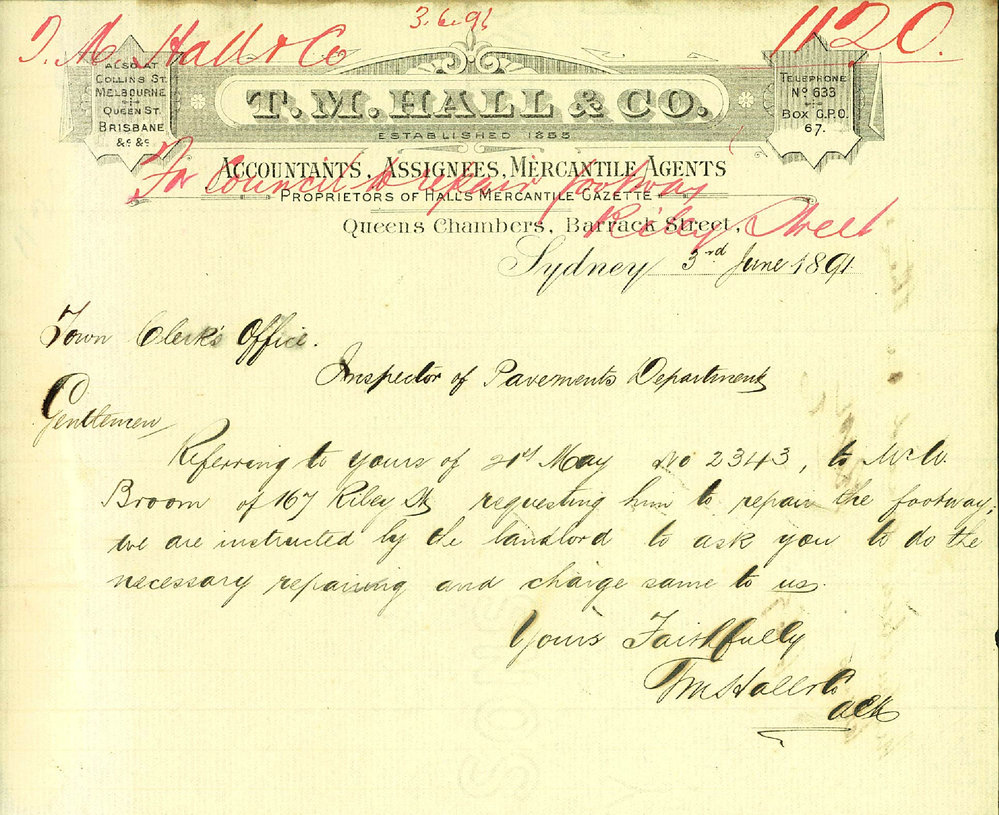 3.6.91
T. M. Hall & Co
1120.
ALSO AT
COLLINS ST.
MELBOURNE
QUEEN ST.
BRISBANE
&c &c
T. M. HALL & CO.
ESTABLISHED 1855
TELEPHONE
No 633
BOX G.P.O.
67.
ACCOUNTANTS, ASSIGNEES, MERCANTILE AGENTS
For Council to repair footway
PROPRIETORS OF HALL'S MERCANTILE GAZETTE
Riley Street
QUEENS CHAMBERS, BARRACK STREET,
Sydney 3rd June 1891
Town Clerk's Office.
Inspector of Pavements Department
Gentlemen
Referring to yours of May No 2343, to Mr W.
Broom of 167 Riley St requesting him to repair the footway;
we are instructed by the landlord to ask you to do the
necessary repairing and charge same to us.
Yours Faithfully
TM Hall & Co